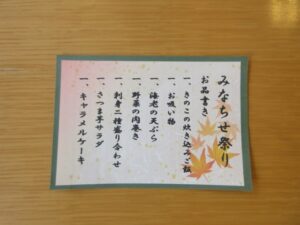 みなちせ祭り
お品書き
一、きのこの炊き込みご飯
一、お吸い物
一、海老の天ぷら
一、野菜の肉巻き
一、刺身二種盛り合わせ
一、さつま芋サラダ
一、キャラメルケーキ